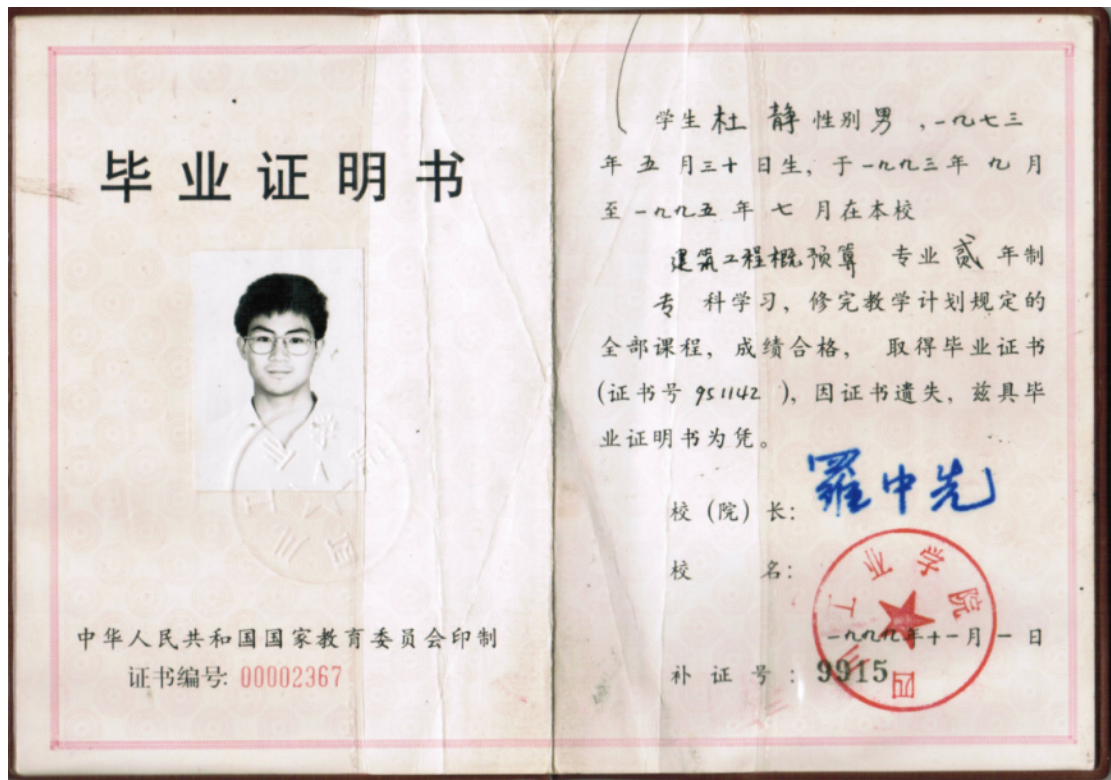 毕业证明书
中华人民共和国国家教育委员会印制
证书编号: 00002367
学生杜静性别男,一九七三
年五月三十日生,于一九九三年九月
至一九九五年七月在本校
建筑工程概预算 专业贰年制
专科学习,修完教学计划规定的
全部课程,成绩合格, 取得毕业证书
(证书号951142),因证书遗失,兹具毕
业证明书为凭。
校(院)长: 羅中先
校 名:
四川工业学院
一九九九年十一月一日
补证号: 9915